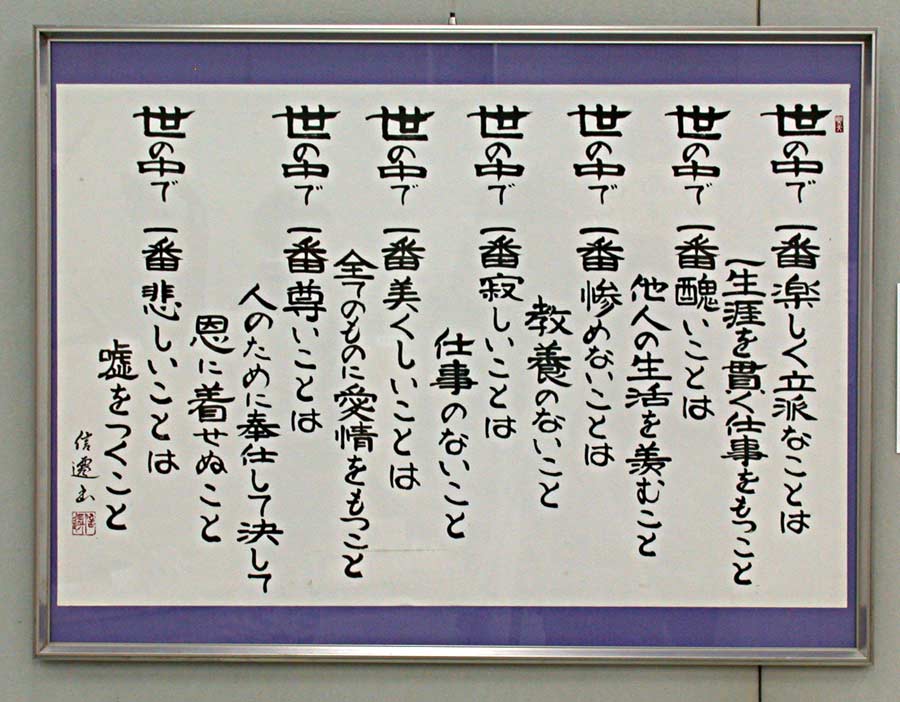 世の中で一番楽しく立派なことは
一生涯を貫く仕事をもつこと
世の中で一番醜いことは
他人の生活を羨むこと
世の中で一番惨めないことは
教養のないこと
世の中で一番寂しいことは
仕事のないこと
世の中で一番美くしいことは
全てのものに愛情をもつこと
世の中で一番尊いことは
人のために奉仕して決して
恩に着せぬこと
世の中で一番悲しいことは
嘘をつくこと
信遷書